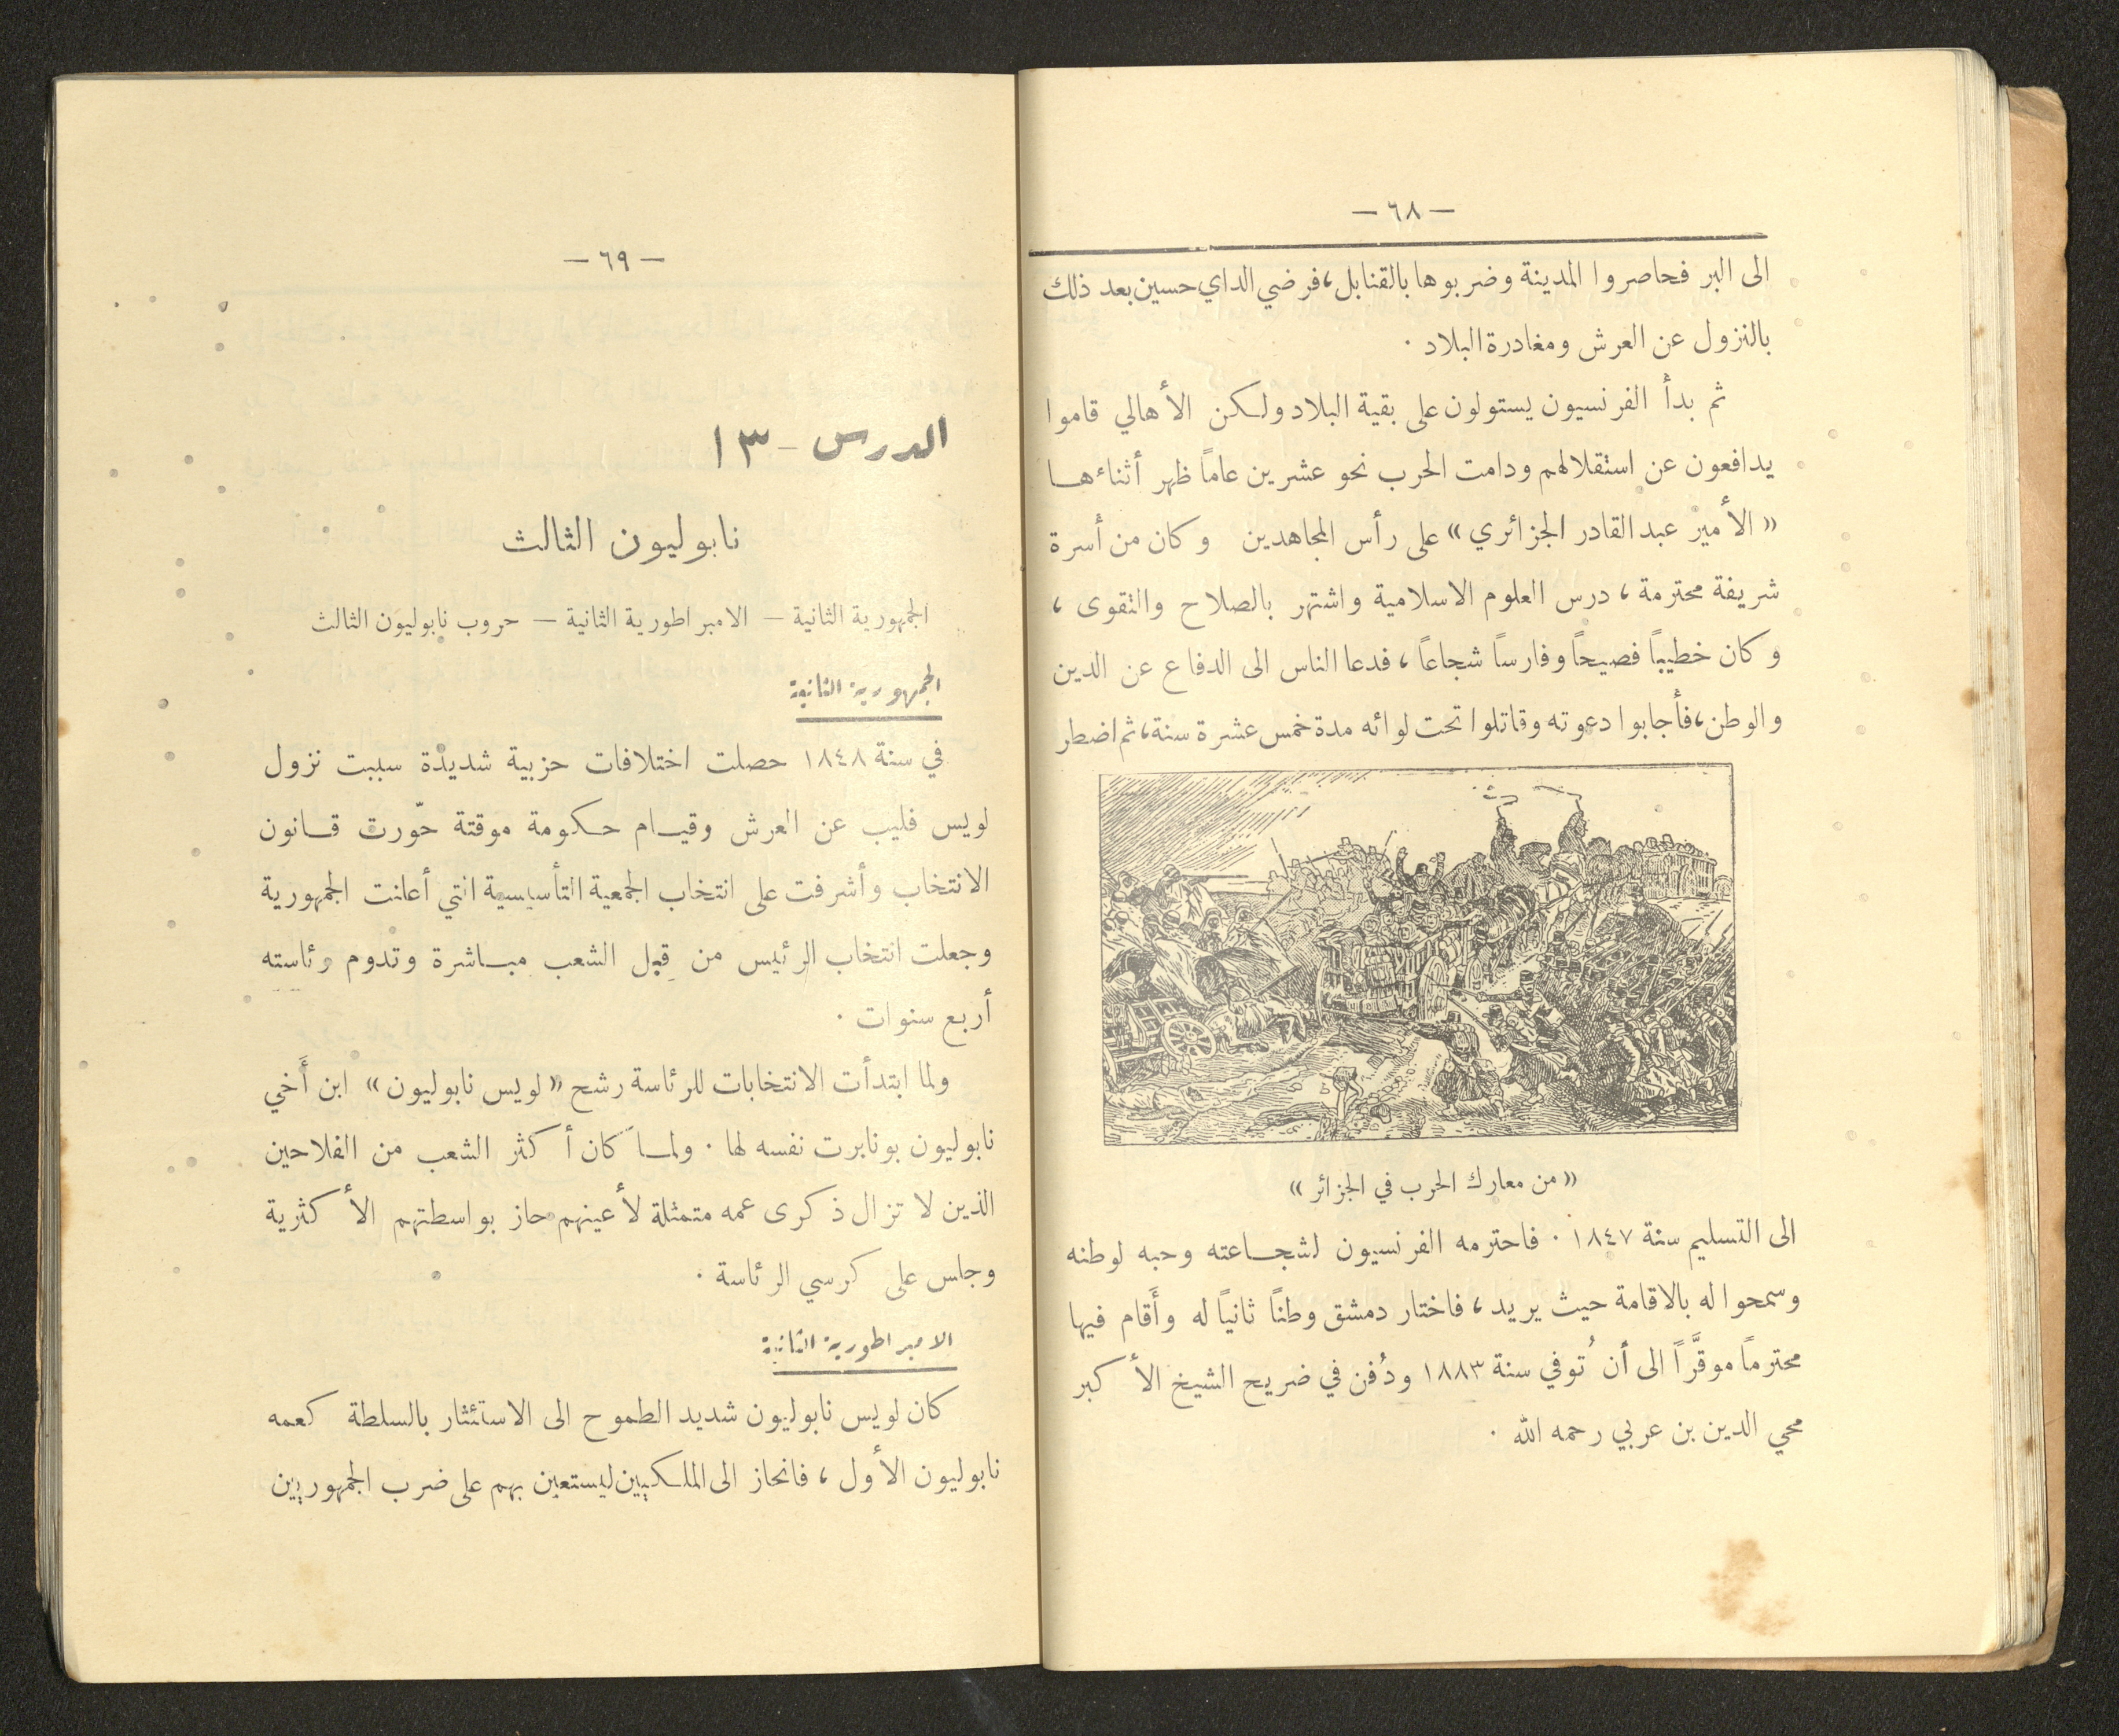 — ٦٨ —
الى البر فحاصروا المدينة وضربوها بالقنابل، فرضي الداي حسين بعد ذلك
بالنزول عن العرش ومغادرة البلاد .
ثم بدأ الفرنسيون يستولون على بقية البلاد ولكن الأهالي قاموا
يدافعون عن استقلالهم ودامت الحرب نحو عشرين عاماً ظهر أثناءها
« الأمير عبد القادر الجزائري » على رأس المجاهدين وكان من أسرة
شريفة محترمة ، درس العلوم الاسلامية واشتهر بالصلاح والتقوى ،
وكان خطيباً فصيحاً وفارساً شجاعاً ، فدعا الناس الى الدفاع عن الدين
والوطن، فأجابوا دعوته وقاتلوا تحت لوائه مدة خمس عشرة سنة، ثم اضطر
« من معارك الحرب في الجزائر »
الى التسليم سنة ١٨٤٧ . فاحترمه الفرنسيون لشجاعته وحبه لوطنه
وسمحوا له بالاقامة حيث يريد ، فاختار دمشق وطناً ثانياً له وأَقام فيها
محترماً موقَّراً الى أن تُوفي سنة ١٨٨٣ ودُفن في ضريح الشيخ الأكبر
محي الدين بن عربي رحمه الله .
— ٦٩ —
الدرس - ١٣
نابوليون الثالث
الجمهورية الثانية — الامبراطورية الثانية — حروب نابوليون الثالث
الجمهورية الثانية
في سنة ١٨٤٨ حصلت اختلافات حزبية شديدة سببت نزول
لويس فليب عن العرش وقيام حكومة موقتة حوّرت قانون
الانتخاب وأشرفت على انتخاب الجمعية التأسيسية التي أعلنت الجمهورية
وجعلت انتخاب الرئيس من قبل الشعب مباشرة وتدوم رئاسته
أربع سنوات .
ولما ابتدأت الانتخابات للرئاسة رشح « لويس نابوليون » ابن أَخي
نابوليون بونابرت نفسه لها . ولما كان أكثر الشعب من الفلاحين
الذين لا تزال ذكرى عمه متمثلة لأعينهم حاز بواسطتهم الأكثرية
وجلس على كرسي الرئاسة .
الامبراطورية الثانية
كان لويس نابوليون شديد الطموح الى الاستئثار بالسلطة كعمه
نابوليون الأول ، فانحاز الى الملكيين ليستعين بهم على ضرب الجمهوريين